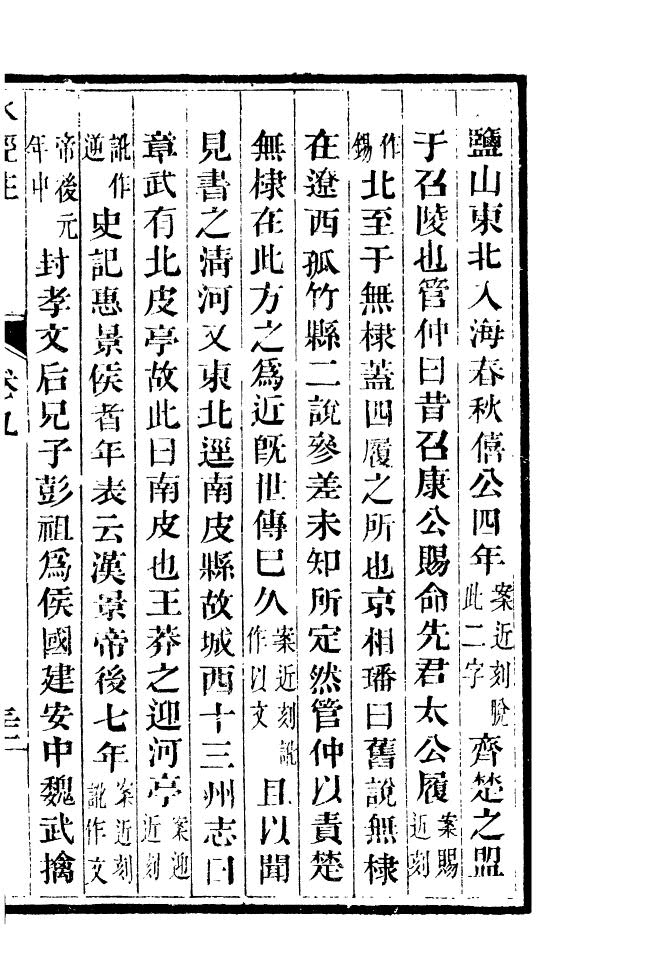 鹽山東北入海春秋僖公四年案近刻脫此二字齊楚之盟
于召陵也管仲曰昔召康公賜命先君太公履案賜近刻
作錫北至于無棣蓋四履之所也京相璠曰舊說無棣
在遼西孤竹縣二說參差未知所定然管仲以責楚
無棣在此方之爲近旣世傳巳久案近刻訛作以文且以聞
見書之清河又東北逕南皮縣故城西十三州志曰
章武有北皮亭故此曰南皮也王莽之迎河亭案迎近刻
訛作逆史記惠景侯者年表云漢景帝後七年案近刻訛作文
帝後元年中封孝文后兄子彭祖爲侯國建安中魏武擒
水經注 卷九